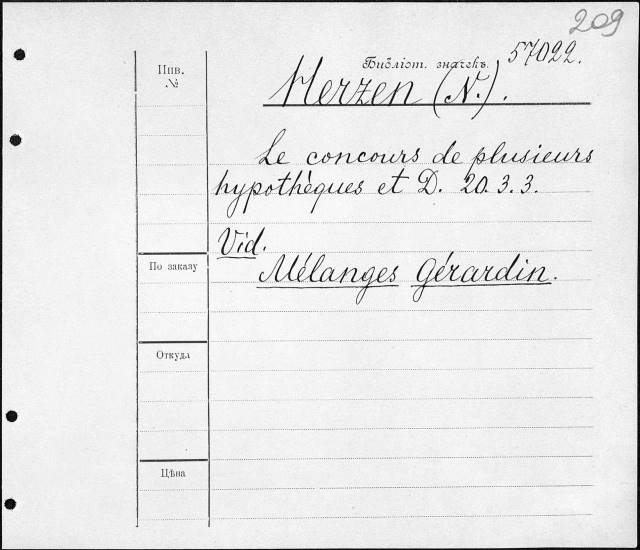 209
Инв. №
Библіот. значекъ. 57022.
Herzen (N.).
Le concours de plusieurs
hypothèques et D. 20.3.3.
Vid.
Mélanges Gérardin.
По заказу
Откуда
Цѣна